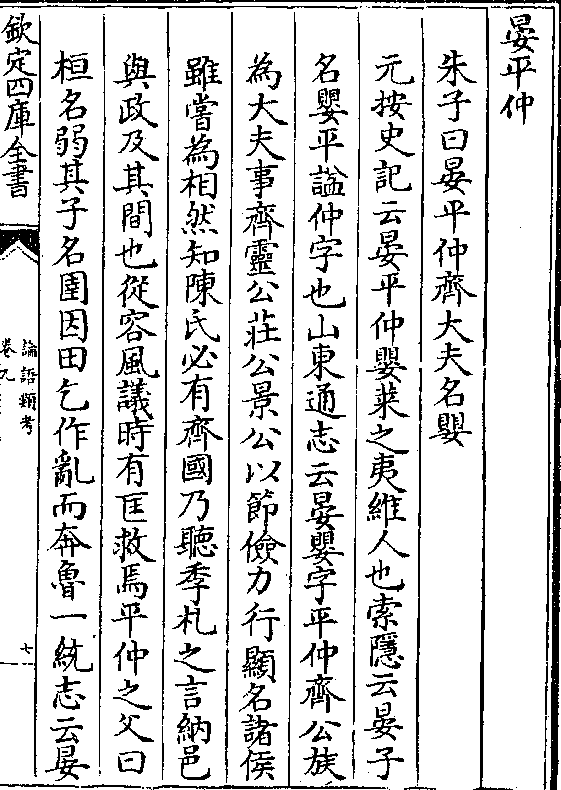 晏平仲
朱子曰晏平仲齊大夫名嬰
元按史記云晏平仲嬰萊之夷維人也索隱云晏子
名嬰平諡仲字也山東通志云晏嬰字平仲齊公族
為大夫事齊靈公莊公景公以節儉力行顯名諸侯
雖嘗為相然知陳氏必有齊國乃聽季札之言納邑
與政及其間也從容風議時有匡救焉平仲之父曰
桓名弱其子名圉因田乞作亂而奔魯一統志云晏
欽定四庫全書
論語類考
卷九
七